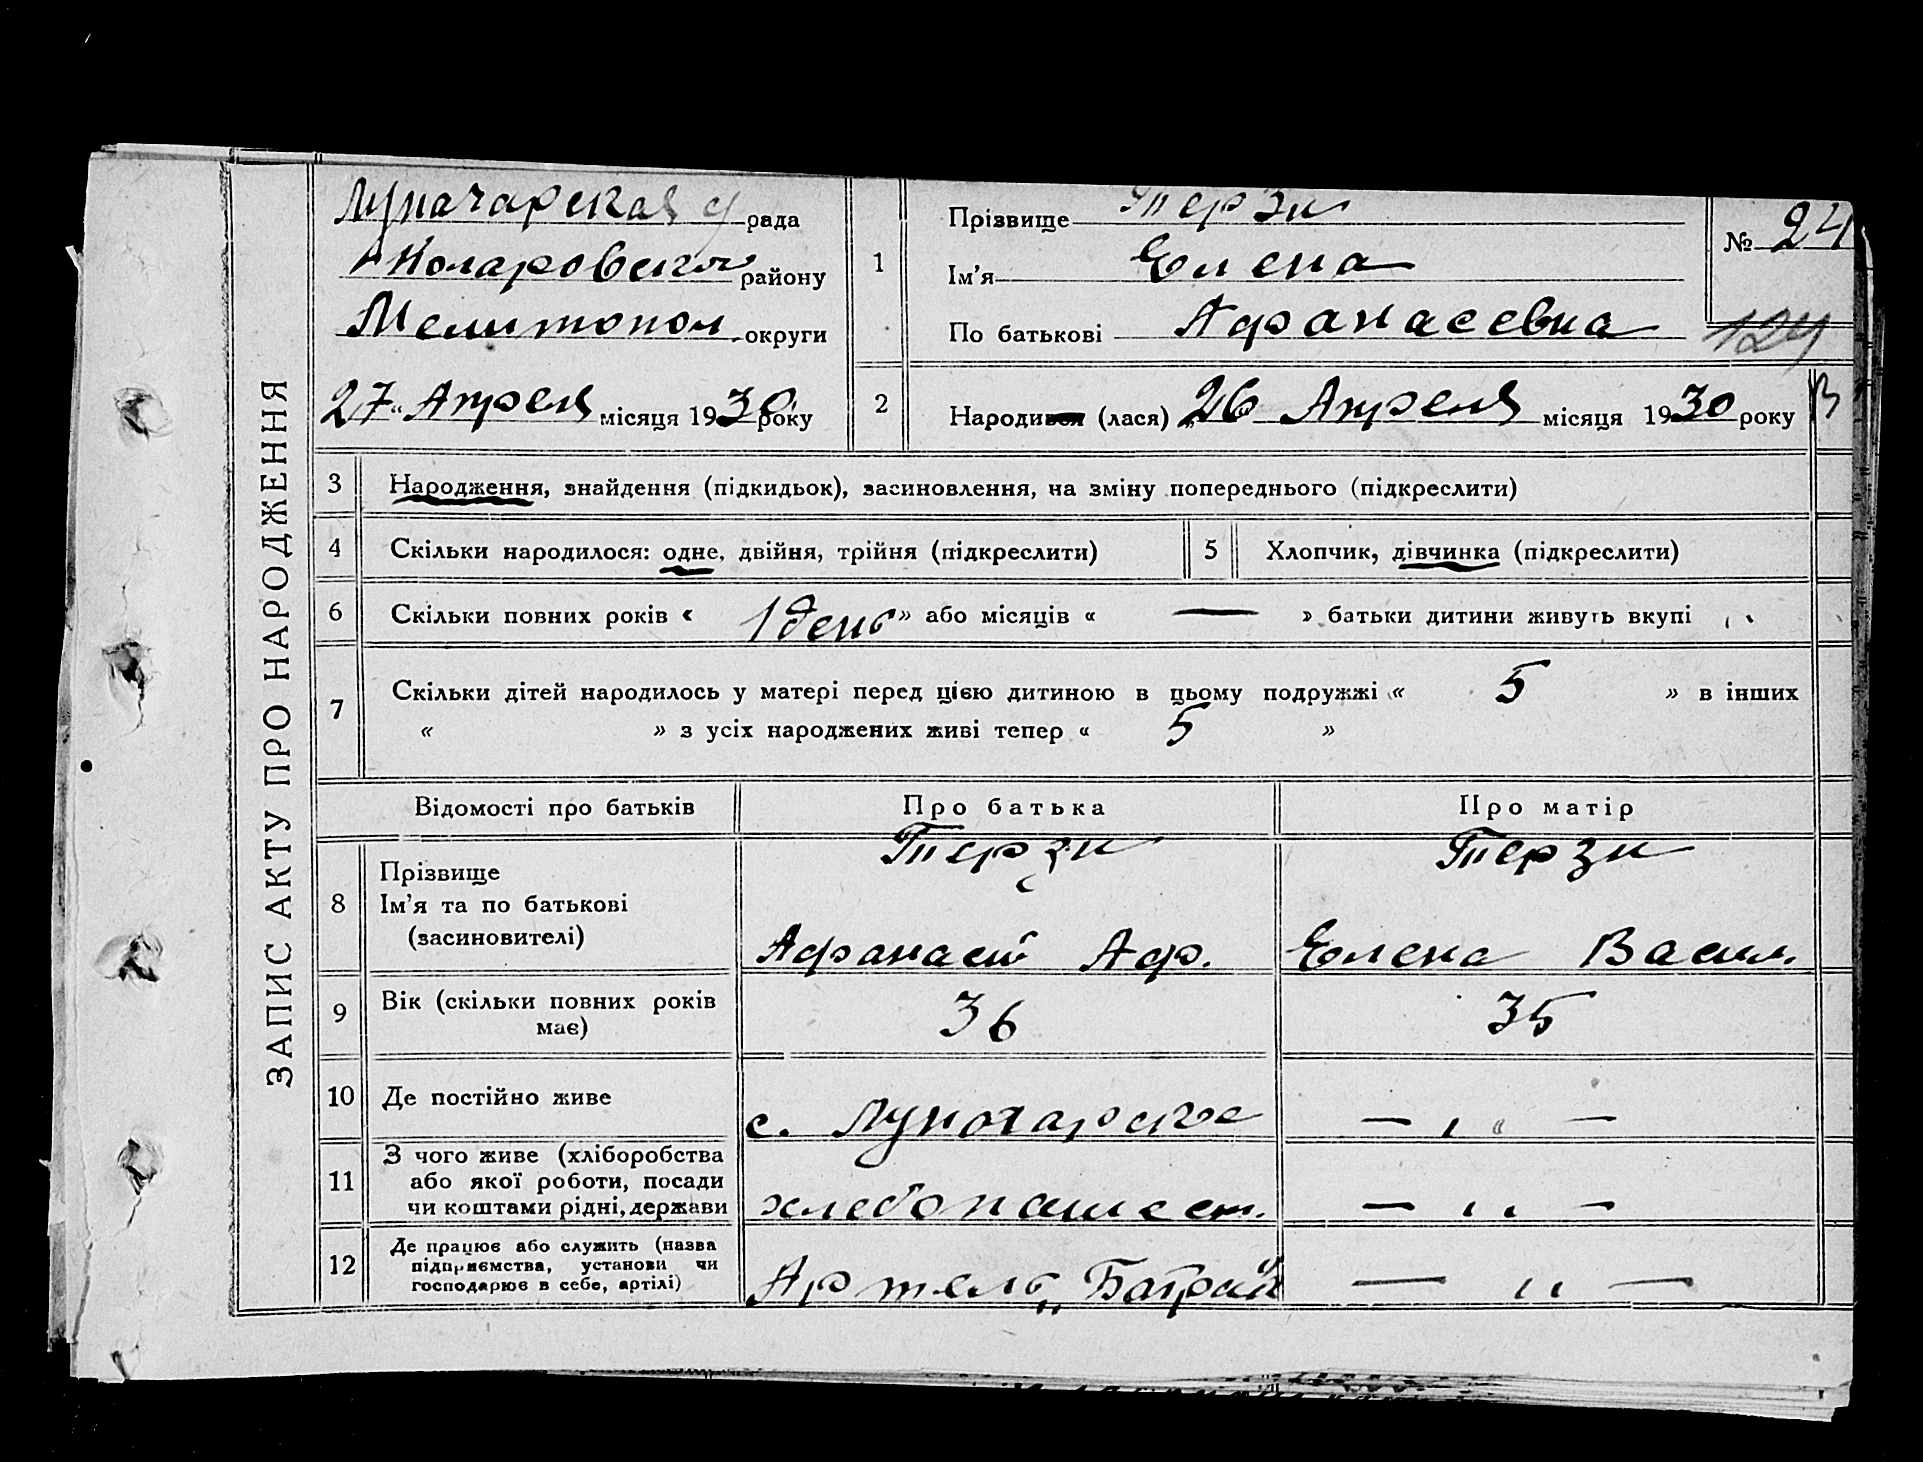 ЗАПИС АКТУ ПРО НАРОДЖЕННЯ
Луначарская рада
Коларовского району
Мелитопол. округи
27 " Апреля місяця 1930 року
1
Прізвище Терзи
Ім'я Елена
По батькові Афанасевна
№ 24
124
2
Народився (лася) „26 Апреля місяця 1930 року
3 Народження, знайдення (підкидьок), засиновлення, на зміну попереднього (підкреслити)
4 Скільки народилося: одне, двійня, трійня (підкреслити)
5 Хлопчик, дівчинка (підкреслити)
6 Скільки повних років « 1 день » або місяців « — » батьки дитини живуть вкупі
7 Скільки дітей народилось у матері перед цією дитиною в цьому подружжі « 5 » в інших
« » з усіх народжених живі тепер « 5 »
Відомості про батьків Про батька Про матір
8 Прізвище
Ім'я та по батькові
(засиновителі)
Терзи
Афанасий Аф.
Терзи
Елена Васил.
9 Вік (скільки повних років
має)
36
35
10 Де постійно живе
с. Луначарское
— „ —
11 З чого живе (хліборобства
або якої роботи, посади
чи коштами рідні, держави
хлебопашест.
— „ —
12 Де працює або служить (назва
підприємства, установи чи
господарює в себе, артілі)
Артель „
— „ —